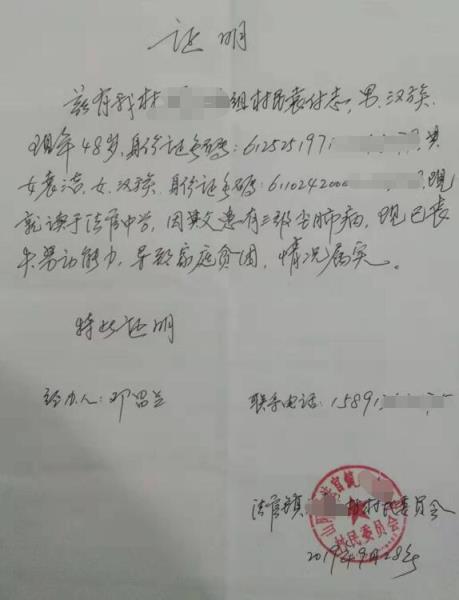 证明
兹有我村 组村民袁付志，男，汉族，
现年48岁，身份证号码：612525197 其
女袁洁，女，汉族，身份证号码：6110242000 现
就读于法官中学，因其父患有三级尘肺病，现已丧
失劳动能力，导致家庭贫困，情况属实。
特此证明
经办人：邓昌兰
联系电话：15891
法官镇 村村民委员会
2019年9月28号
村民委员会